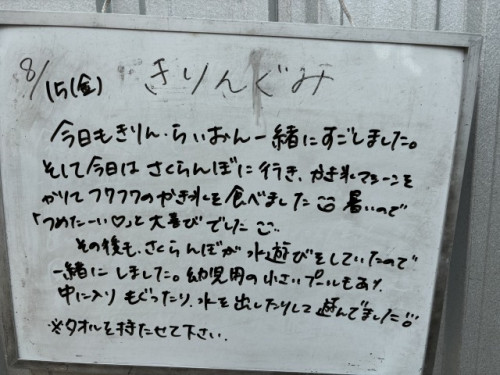 8/15(金) きりんぐみ
今日もきりん・らいおん一緒にすごしました。
そして今日は さくらんぼに行き、かき氷マシーンを
かりて フワフワのかき氷を食べました 暑いので
「つめたーい♡」と大喜びでした
その後も、さくらんぼが水遊びをしていたので
一緒にしました。幼児用の小さいプールもあり
中に入りもぐったり、水を出したりして遊んでました
※タオルを持たせて下さい。